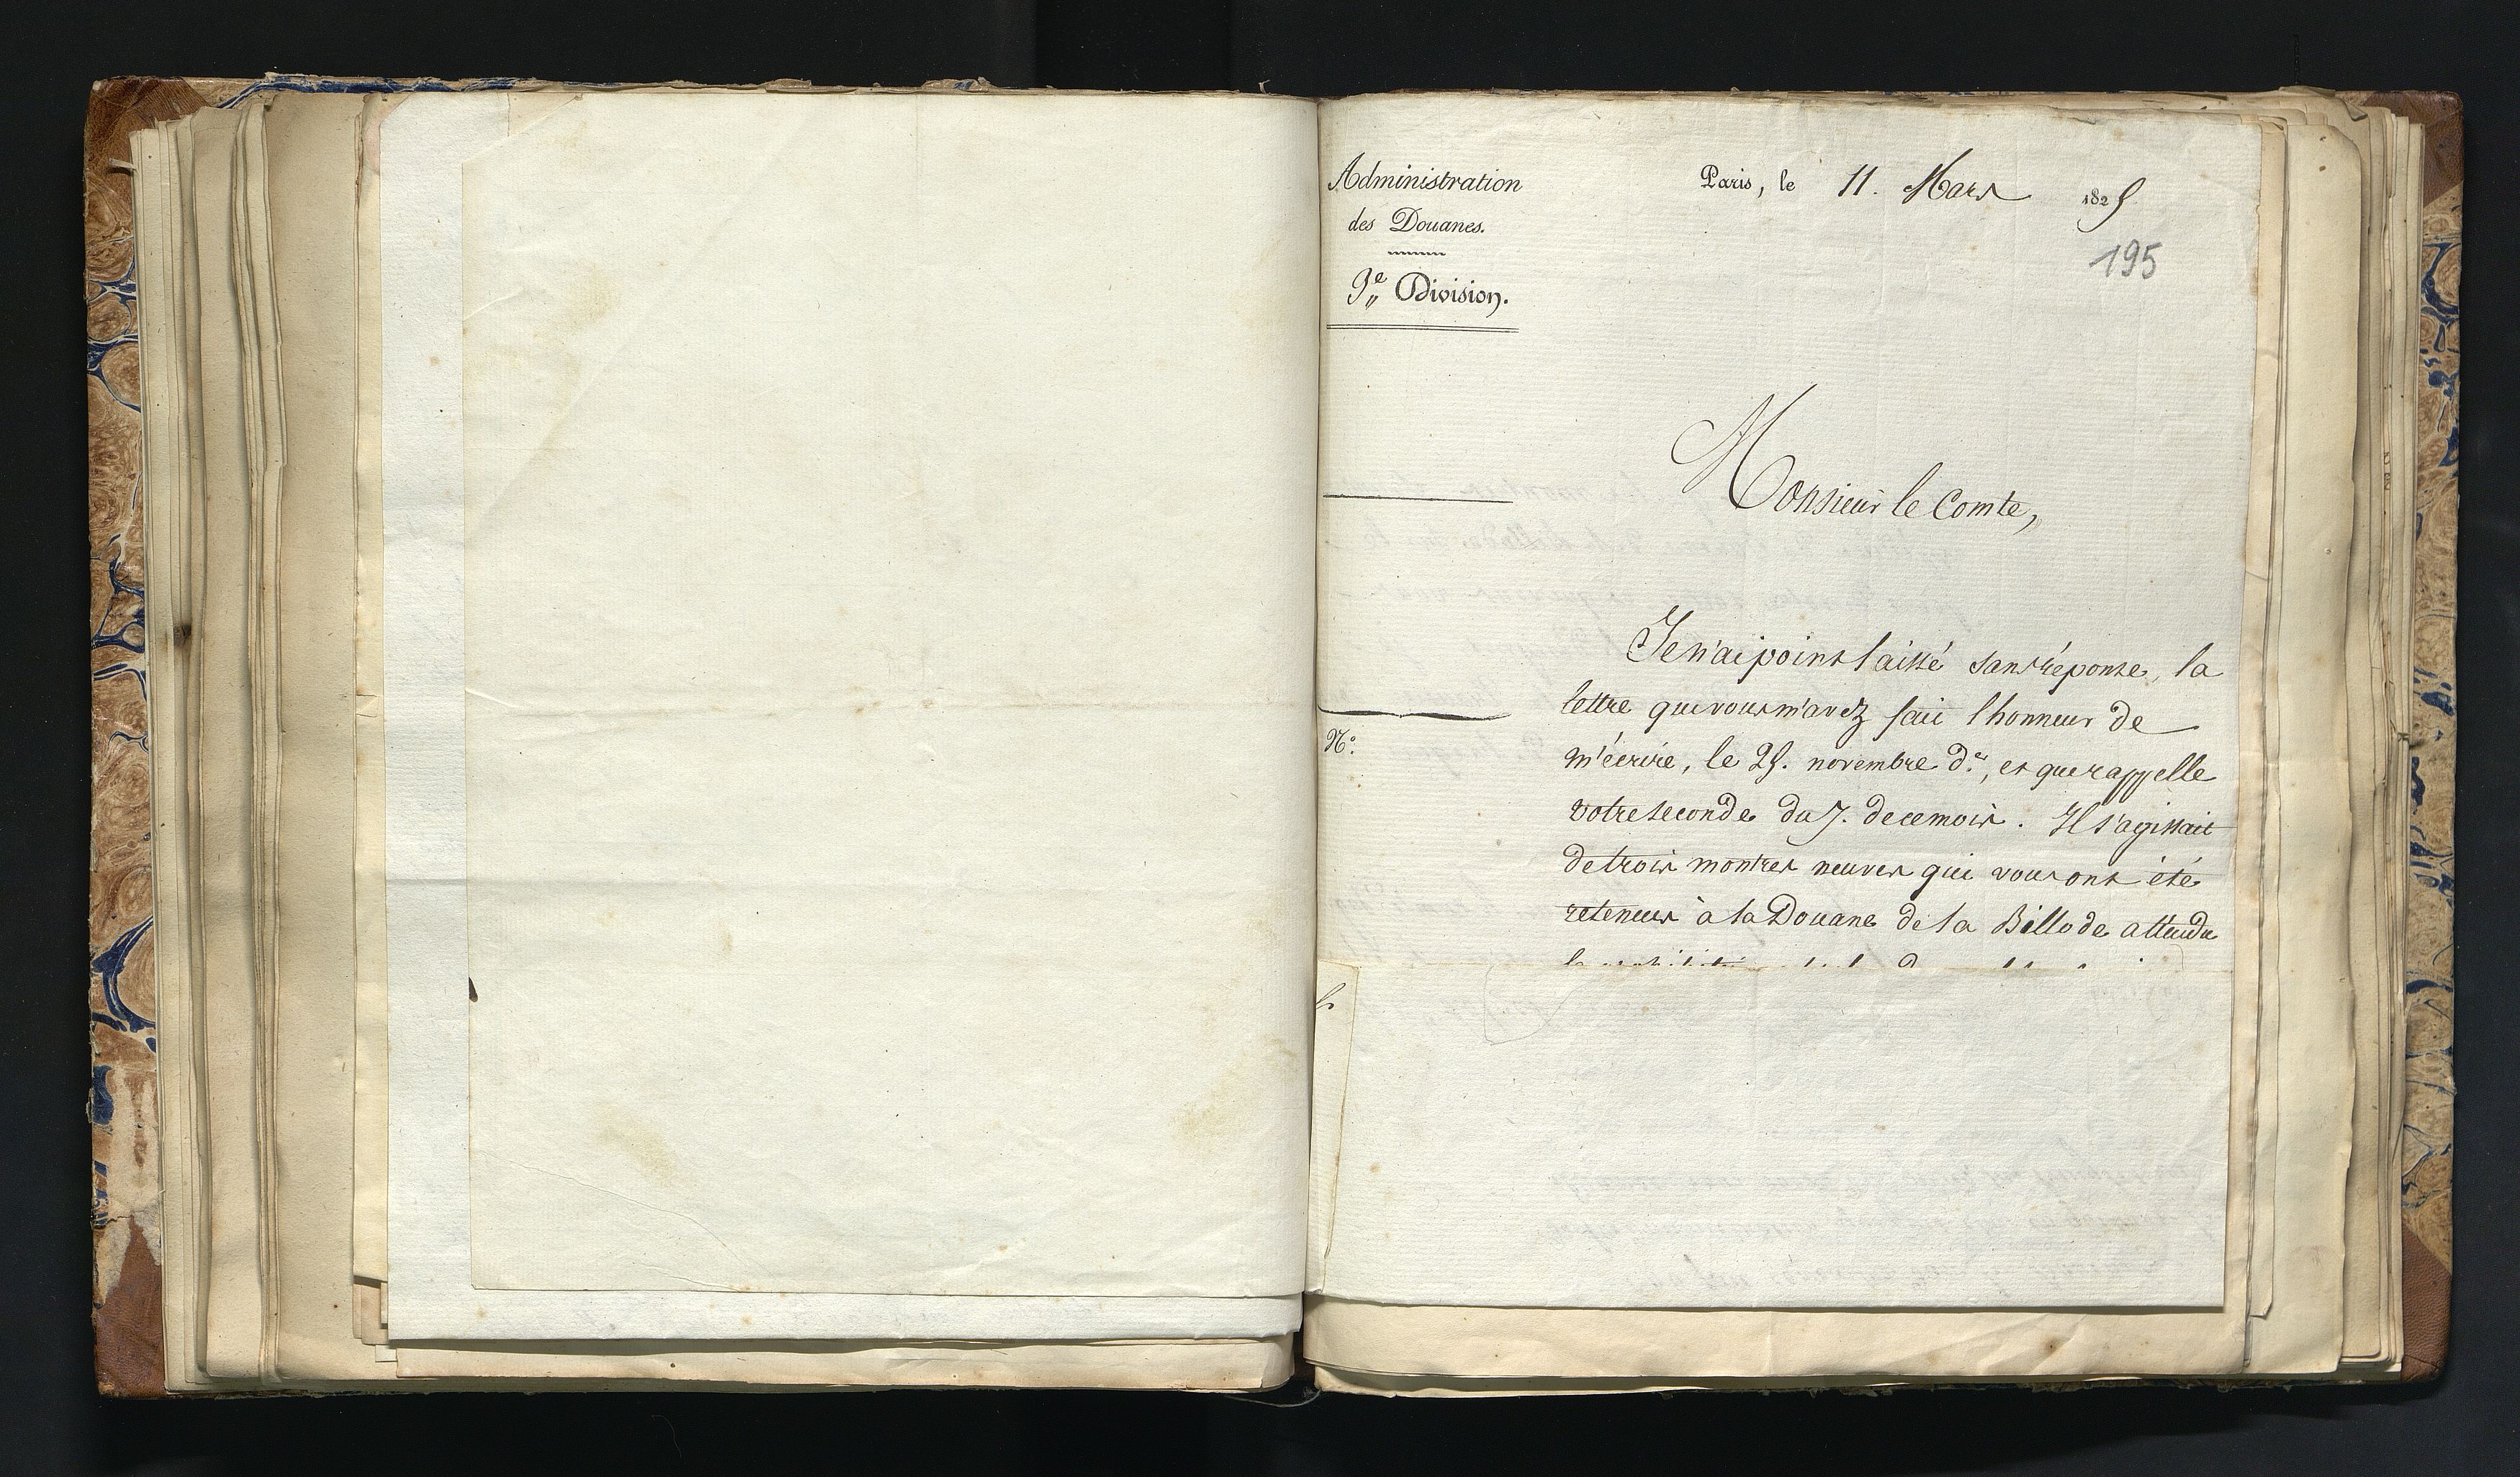 Administration
des Douanes.
Paris, le 11. Mars 1825
195
3e Division.
Monsieur le Comte,
Je n'ai point laissé sans réponse, la
lettre que vous m'avez fait l'honneur de
m'écrire, le 25. novembre der, et que rappelle
votre seconde du 7. de ce mois. Il s'agissait
de trois montres neuves qui vous ont été
retenues à la Douane de la Billode attendu
No.